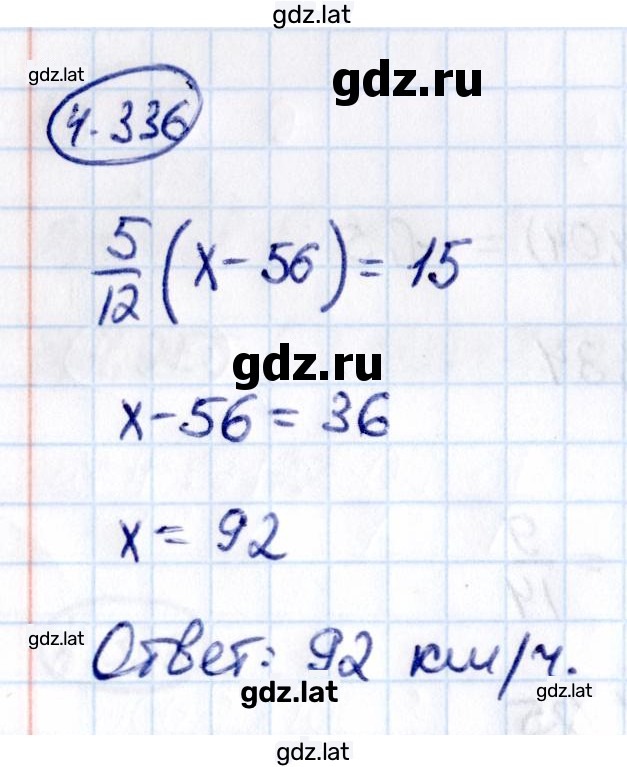 gdz.lat
gdz.lat
gdz.ru
4.336
5/12 (x - 56) = 15
gdz.ru
x - 56 = 36
x = 92
gdz.lat
Ответ: 92 км/ч.
gdz.lat
gdz.lat
gdz.lat